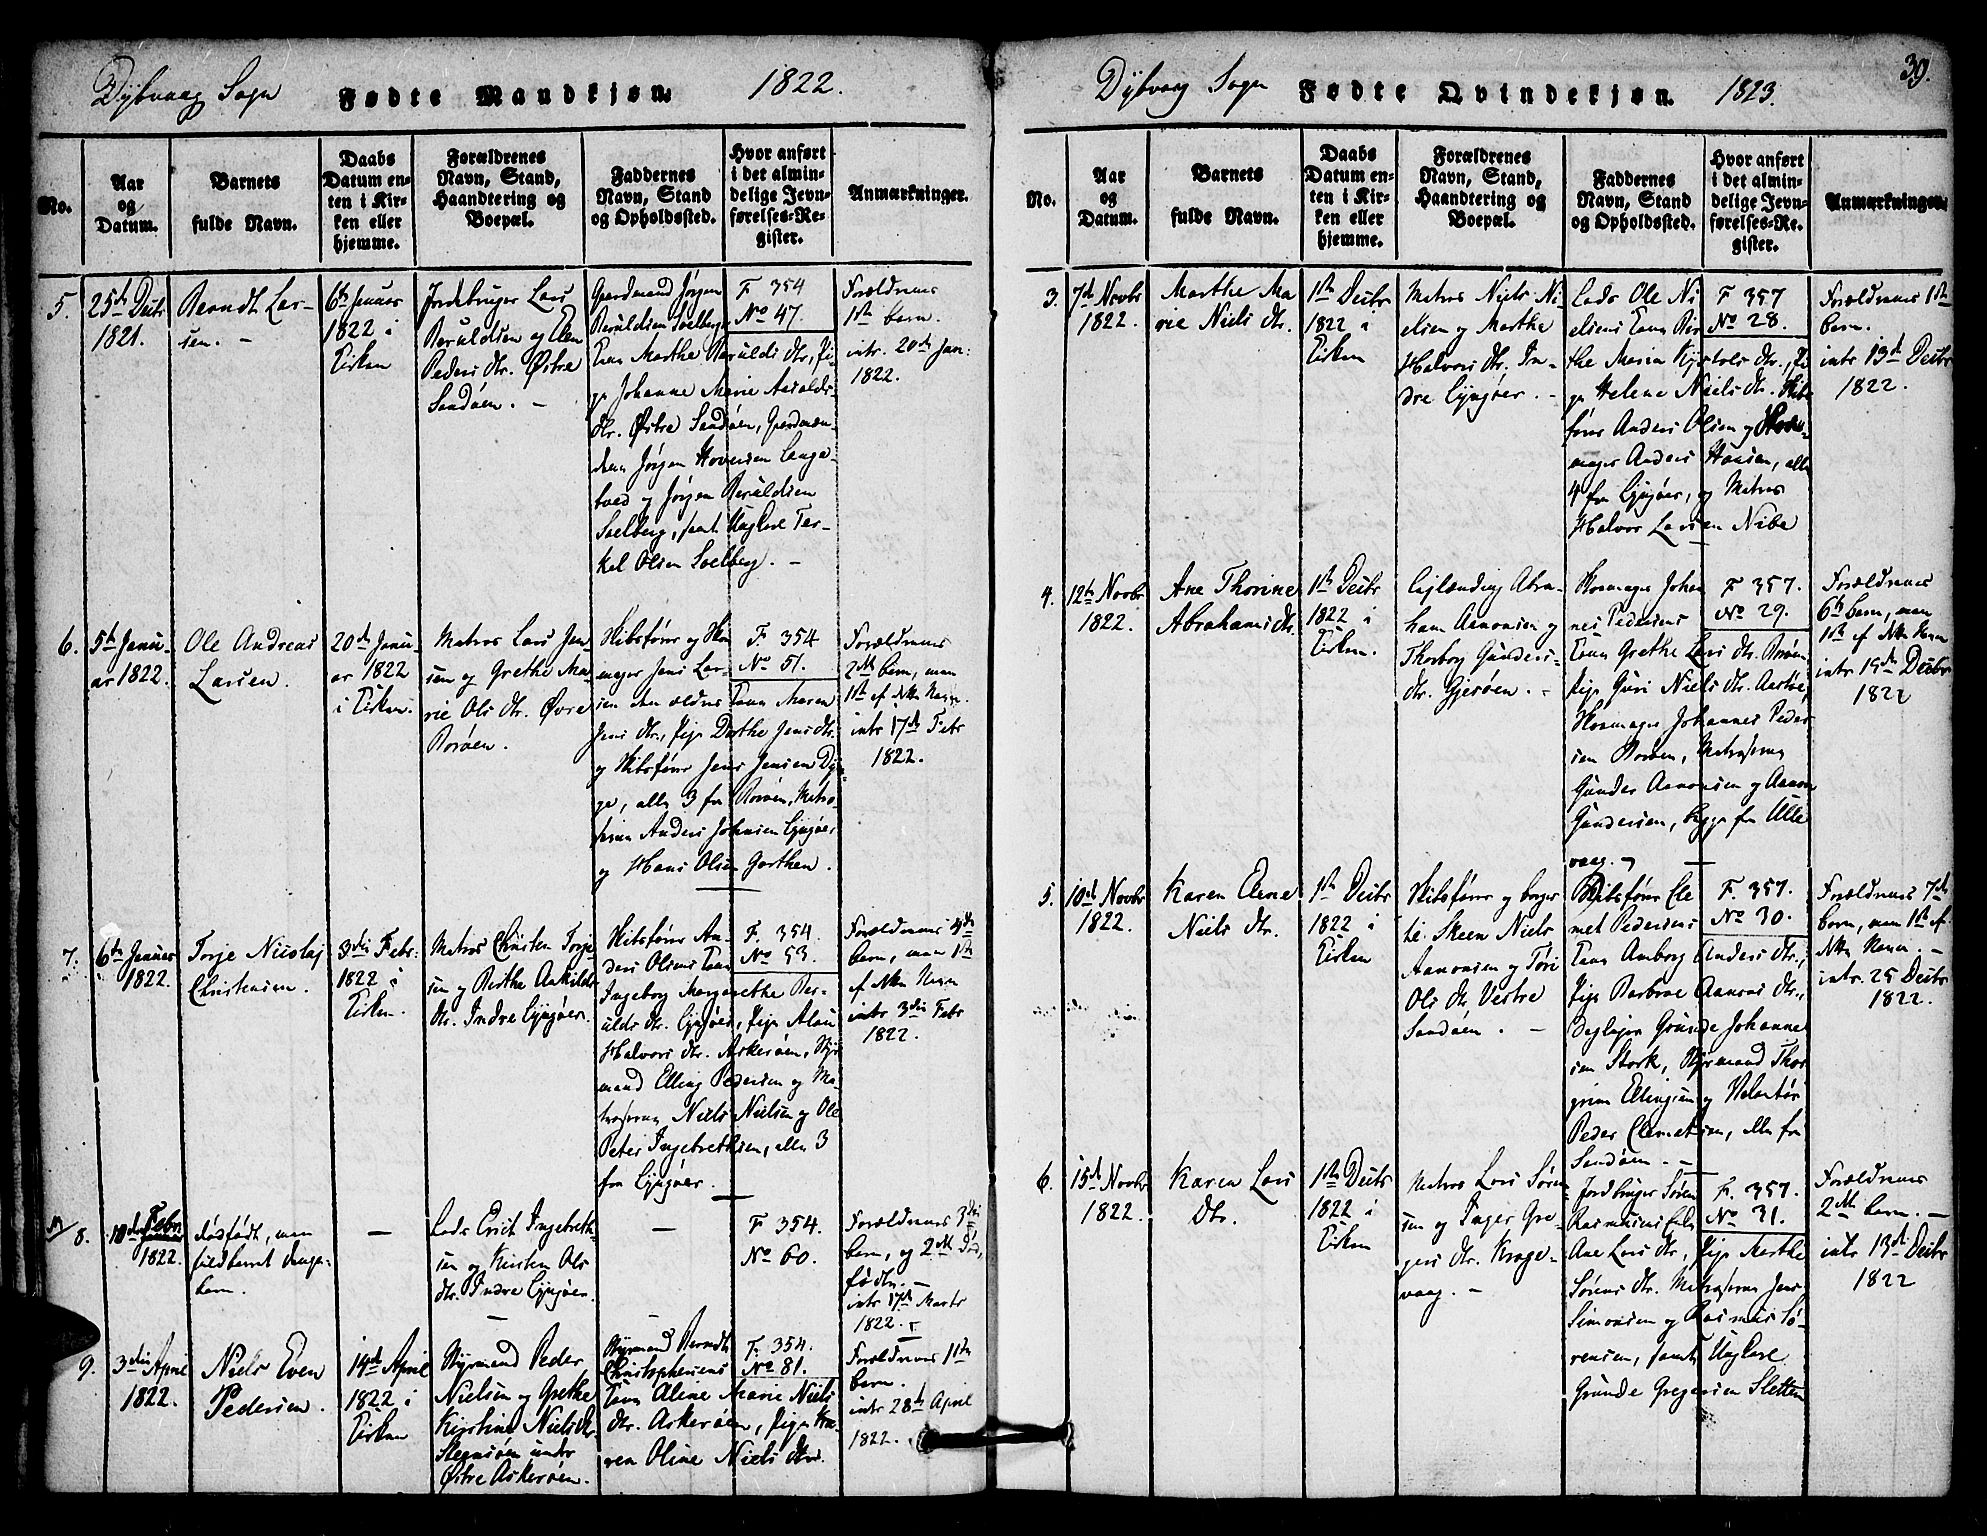 Dybvaag Sogn
Fødte Mandkjøn.
1822.
No.
Aar
og
Datum.
Barnets
fulde Navn.
Daabs
Datum en-
ten i Kir-
ken eller
hjemme.
Forældrenes
Navn, Stand,
Haandtering og
Boepæl.
Faddernes
Navn, Stand
og Opholdssted.
Hvor anført
i det almin-
delige Jevn-
førelses-Re-
gister.
Anmærkninger.
5.
25de Decbr
1821.
Berndt Lar-
sen. -
6te Januar
1822 i
Kirken
Jordbruger Lars
Beruldsen og Elen
Peders Dtr. Østre
Sandøen. -
Gaardmand Jørgen
Beruldsen Soelberg
Kone Marthe Berulds Dtr., Pi-
ge Johanne Marie Aasulds-
Dtr. Østre Sandøen, Gaardmæn-
dene Jørgen Hovensen Lange-
toed og Jørgen Beruldsen
Soelberg, samt Ungkarl Ter-
kel Olsen Soelberg. -
F 354
No 47.
Forældrenes
1ste barn.
intr. 20de Jan:
1822.
6.
5te Janu-
ar 1822.
Ole Andreas
Larsen.
20de Janu-
ar 1822
i Kirken.
Matros Lars Jen-
sen og Grethe Ma-
rie Ols Dtr. Øvre
Borøen.
Skibsfører og Sko-
mager Jens Lar-
sen den ældres Kone Maren
Jens Dtr., Pige Dorthe Jens Dtr.
og Skibsfører Jens Jensen Dyn-
ge, alle 3 fra Borøen, Matro-
serne Anders Johnsen Lyngøer
og Hans Olsen Garthen.
F. 354
No 51.
Forældrenes
2det barn, men
1ste af dette Navn.
intr 17de Febr
1822.
7.
6te Januar
1822.
Torje Nicolaj
Christensen.
3die Febr:
1822 i
Kirken.
Matros Christen Torje-
sen og Berthe Askilds
Dtr. Indre Lyngøer.
Skibsfører An-
ders Olsens Kone
Ingeborg Margarethe Ber-
ulds Dtr. Lyngøer, Pige Alou
Halvors Dtr. Askerøen, Styr-
mand Elling Pedersen og Ma-
troserne Niels Nielsen og Ole
Peter Ingebrethsen, alle 3
fra Lyngøer.
F. 354.
No 53.
Forældrenes
barn, men 1ste
af dette Navn
intr 3die Febr
1822.
8.
Febr
1822.
dødfødt, men
fuldbaaret Drenge-
barn.
-
Lods Erich Ingebreth-
sen og Kirsten Ols
Dtr. Indre Lyngøer.
-
F 354.
No 60.
Forældrenes 3die
barn, og 2det Død-
født. -
intr 17de Marts
1822.
9.
3die April
1822.
Niels Even
Pedersen.
14de April
1822 i
Kirken
Styrmand Peder
Nielsen og Grethe
Kirstine Niels Dtr.
Steensøen under
Østre Askerøen.
Styrmand Berndt
Christophersens
Kone Alene Marie Niels
Dtr. Askerøen, Pige Ka-
ren Oline Niels Dtr.
F. 354.
No 81.
Forældrenes 1ste
barn.
intr 28de April
1822.
Dybvaag Sogn
Fødte Qvindekjøn.
1823.
39.
No.
Aar
og
Datum.
Barnets
fulde Navn.
Daabs
Datum en-
ten i Kir-
ken eller
hjemme.
Forældrenes
Navn, Stand,
Haandtering og
Boepæl.
Faddernes
Navn, Stand
og Opholdssted.
Hvor anført
i det almin-
delige Jevn-
førelses-Re-
gister.
Anmærkninger.
3.
7de Novbr
1822.
Marthe Ma-
rie Niels Dtr.
1ste Decbr
1822 i
Kirken
Matros Niels Ni-
elsen og Marthe
Halvors Dtr. In-
dre Lyngøer. -
Lods Ole Ni-
elsens Kone Bir-
the Maria Kjøstols Dtr., Pi-
ge Helene Niels Dtr. Skibs-
fører Anders Olsen og Skoe-
mager Anders Hansen, alle
4 fra Lyngøer, og Matros
Halvor Larsen Nibe
F 357
No 28.
Forældrenes 1ste
barn.
intr 13de Decbr
1822.
4.
12te Novbr
1822.
Ane Thorine
Abrahams Dtr.
1ste Decbr
1822 i
Kirken.
Leylænding Abra-
ham Aanonsen og
Thorborg Gunders
Dtr. Gjesøen. -
Skomager Johan-
nes Pedersens
Kone Grethe Lars Dtr. Borøen
Pige Guri Niels Dtr. Aastøe,
Skomager Johannes Peder-
sen Borøen, Matroserne
Gunder Aanonsen og Aanon
Gundersen, begge fra Ulle-
vaag. -
F 357.
No 29.
Forældrenes
6te barn, men
1ste af dette Navn
intr 19de Decbr
1822
5.
10de Novbr
1822.
Karen Elene
Niels Dtr.
1ste Decbr
1822 i
Kirken
Skibsfører og borger
til Skeen Niels
Aanonsen og Tøri
Ols Dtr Vestre
Sandøen. -
Skibsfører Cle-
met Pedersens
Kone Amborg Anders Dtr.,
Pige Barbroe Aanons Dtr.,
Grunde Johanne-
sen Stork, Styrmand Thor-
grim Ellingsen og
Peder Clemetsen, alle fra
Sandøen. -
F. 357.
No 30.
Forældrenes 7de
barn, men 1ste af
dette Navn. -
intr 25 Decbr
1822.
6.
15de Novbr
1822.
Karen Lars
Dtr.
1ste Decbr
1822 i
Kirken
Matros Lars Søren-
sen og Inger Gre-
gers Dtr. Krage-
vaag. -
Jordbruger Søren
Rasmusens
Ane Lars Dtr, Pige Marthe
Sørens Dtr. Matroserne Jens
Simonsen og Rasmus Sø-
rensen, samt Ungkarl
Grunde Gregersen Sletten
F. 357.
No 31.
Forældrenes
2det barn. -
intr 13de Decbr
1822